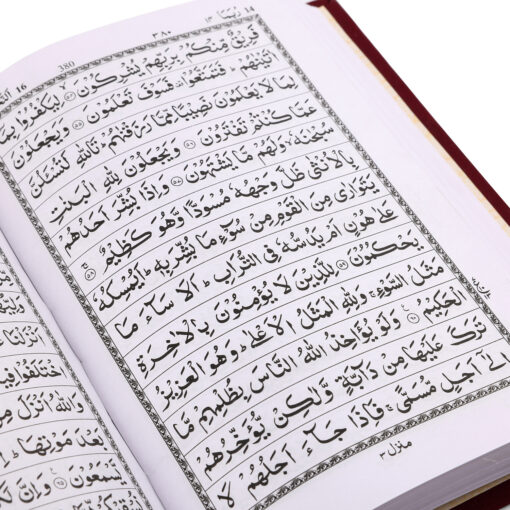 ١٤ رُبَمَا
٣٨٠
380
16
فَرِيْقٌ مِّنْكُمْ بِرَبِّهِمْ يُشْرِكُوْنَ ۙ لِيَكْفُرُوْا بِمَاۤ
اٰتَيْنٰهُمْ ؕ فَتَمَتَّعُوْا ۫ فَسَوْفَ تَعْلَمُوْنَ وَيَجْعَلُوْنَ
لِمَا لَا يَعْلَمُوْنَ نَصِيْبًا مِّمَّا رَزَقْنٰهُمْ ؕ تَاللّٰهِ لَتُسْـَٔلُنَّ
عَمَّا كُنْتُمْ تَفْتَرُوْنَ وَيَجْعَلُوْنَ لِلّٰهِ الْبَنٰتِ
سُبْحٰنَهٗ ۙ وَلَهُمْ مَّا يَشْتَهُوْنَ وَاِذَا بُشِّرَ اَحَدُهُمْ
بِالْاُنْثٰى ظَلَّ وَجْهُهٗ مُسْوَدًّا وَّهُوَ كَظِيْمٌ
يَتَوَارٰى مِنَ الْقَوْمِ مِنْ سُوْٓءِ مَا بُشِّرَ بِهٖ ؕ اَيُمْسِكُهٗ
عَلٰى هُوْنٍ اَمْ يَدُسُّهٗ فِى التُّرَابِ ؕ اَلَا سَآءَ مَا
يَحْكُمُوْنَ لِلَّذِيْنَ لَا يُؤْمِنُوْنَ بِالْاٰخِرَةِ
مَثَلُ السَّوْءِ ۚ وَلِلّٰهِ الْمَثَلُ الْاَعْلٰى ؕ وَهُوَ الْعَزِيْزُ
الْحَكِيْمُ وَلَوْ يُؤَاخِذُ اللّٰهُ النَّاسَ بِظُلْمِهِمْ مَّا
تَرَكَ عَلَيْهَا مِنْ دَآبَّةٍ وَّلٰكِنْ يُّؤَخِّرُهُمْ
اِلٰٓى اَجَلٍ مُّسَمًّى ۚ فَاِذَا جَآءَ اَجَلُهُمْ لَا
منزل ٣
وَاللّٰهُ اَنْزَلَ
بَعْدَ مَوْتِهَا
يَّسْمَعُوْنَ وَاِنَّ